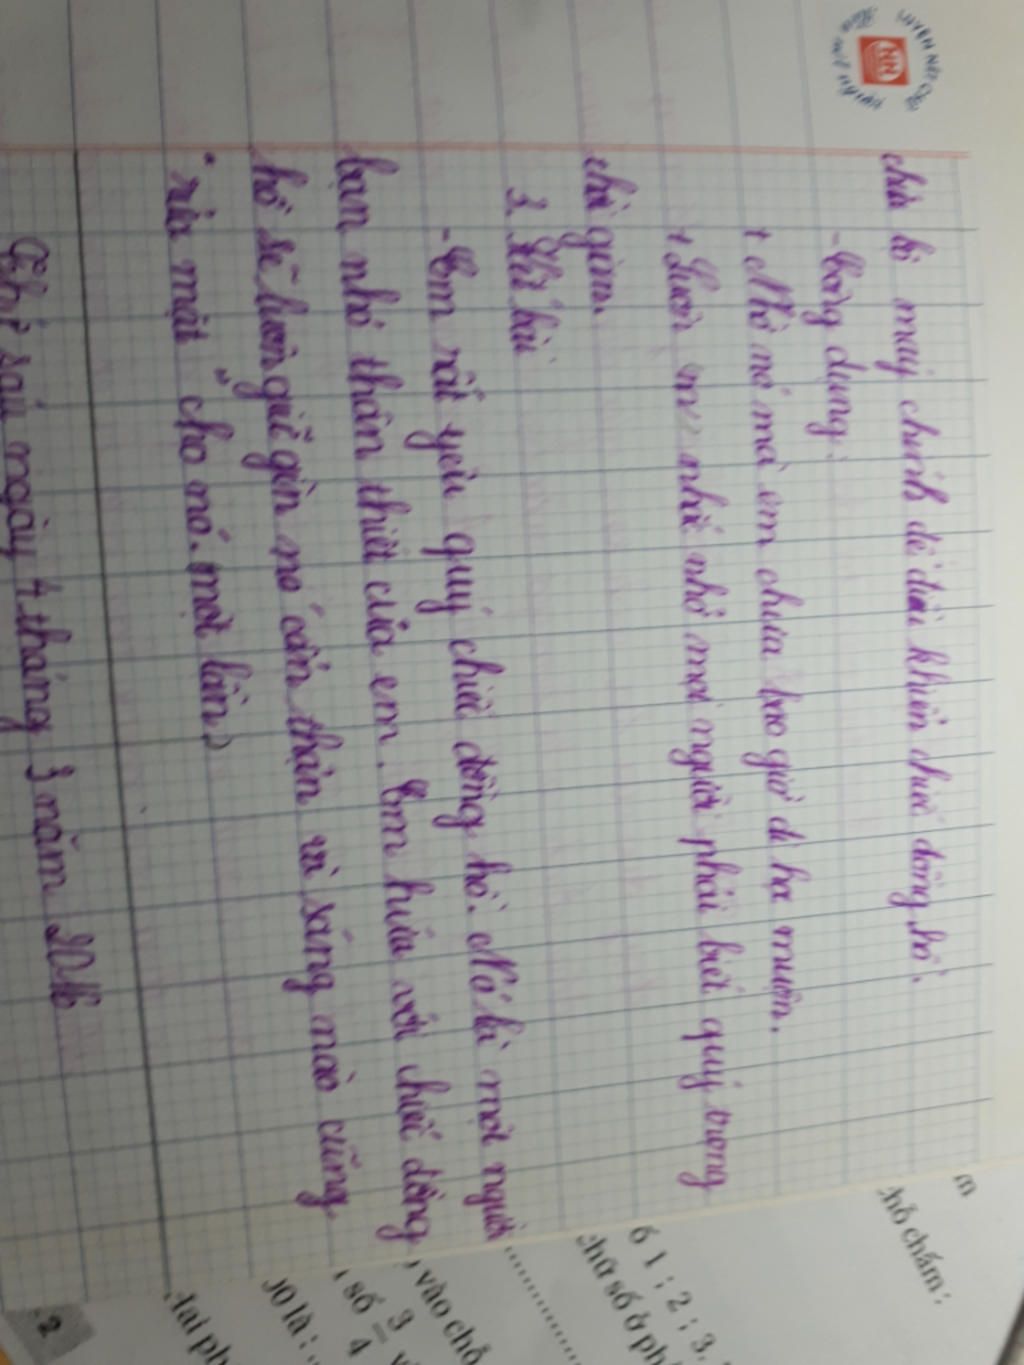 LUYỆN NÉT CHỮ
NN
chứa bộ máy chính để điều khiển chiếc đồng hồ.
- Công dụng:
+ Nhờ nó mà em chưa bao giờ đi học muộn.
+ Luôn nhắc nhở mọi người phải biết quý trọng
thời gian.
3. Kết bài
- Em rất yêu quý chiếc đồng hồ. Nó là một người
bạn nhỏ thân thiết của em. Em hứa với chiếc đồng
hồ sẽ luôn giữ gìn nó cẩn thận và sáng nào cũng
rửa mặt cho nó một lần
Thứ sáu ngày 4 tháng 3 năm
m
chỗ chấm :
6 1 ; 2 ; 3.
chữ số 6 ph
vào chỗ
số 9/4
là :
tại ph
2